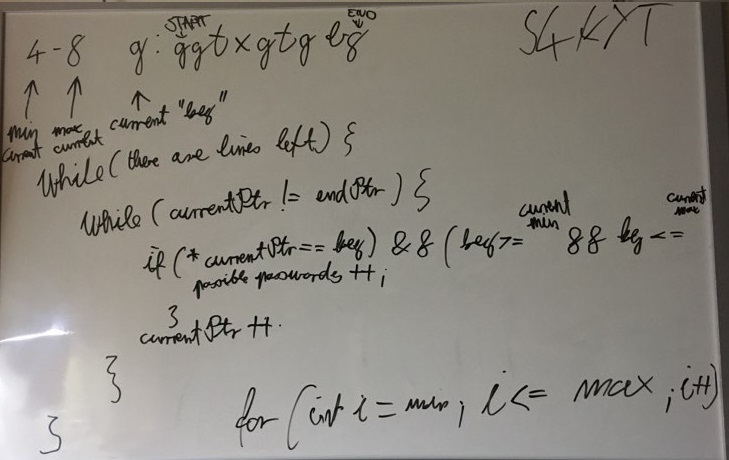 START
END
4-8 g: ggtxgtg bg
S4KYT
min current
max current
current "beg"
While (there are lines left) {
While (currentPtr != endPtr) {
if (* currentPtr == beg) && (beg >= current min && beg <= current max
possible passwords ++;
}
currentPtr ++.
}
for (int i = min; i <= max; i++)
}